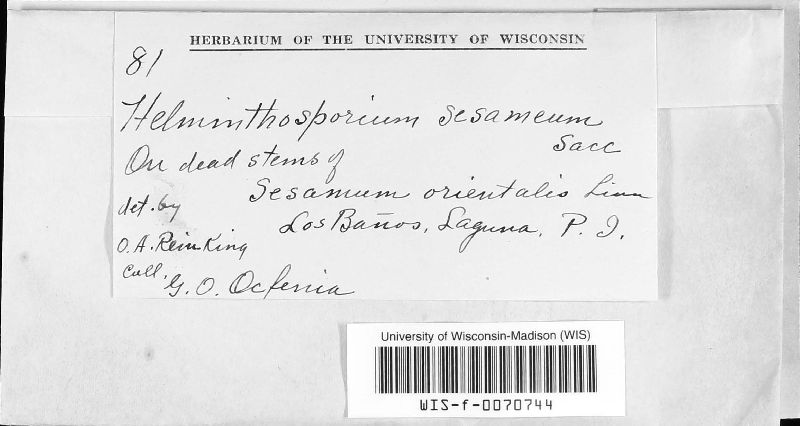 HERBARIUM OF THE UNIVERSITY OF WISCONSIN
81
Helminthosporium sesameum
Sacc
On dead stems of
Sesamum orientalis Linn
det. by
Los Baños, Laguna, P. I.
O. A. Reinking
Coll. G. O. Ocfemia
University of Wisconsin-Madison (WIS)
WIS-f-0070744